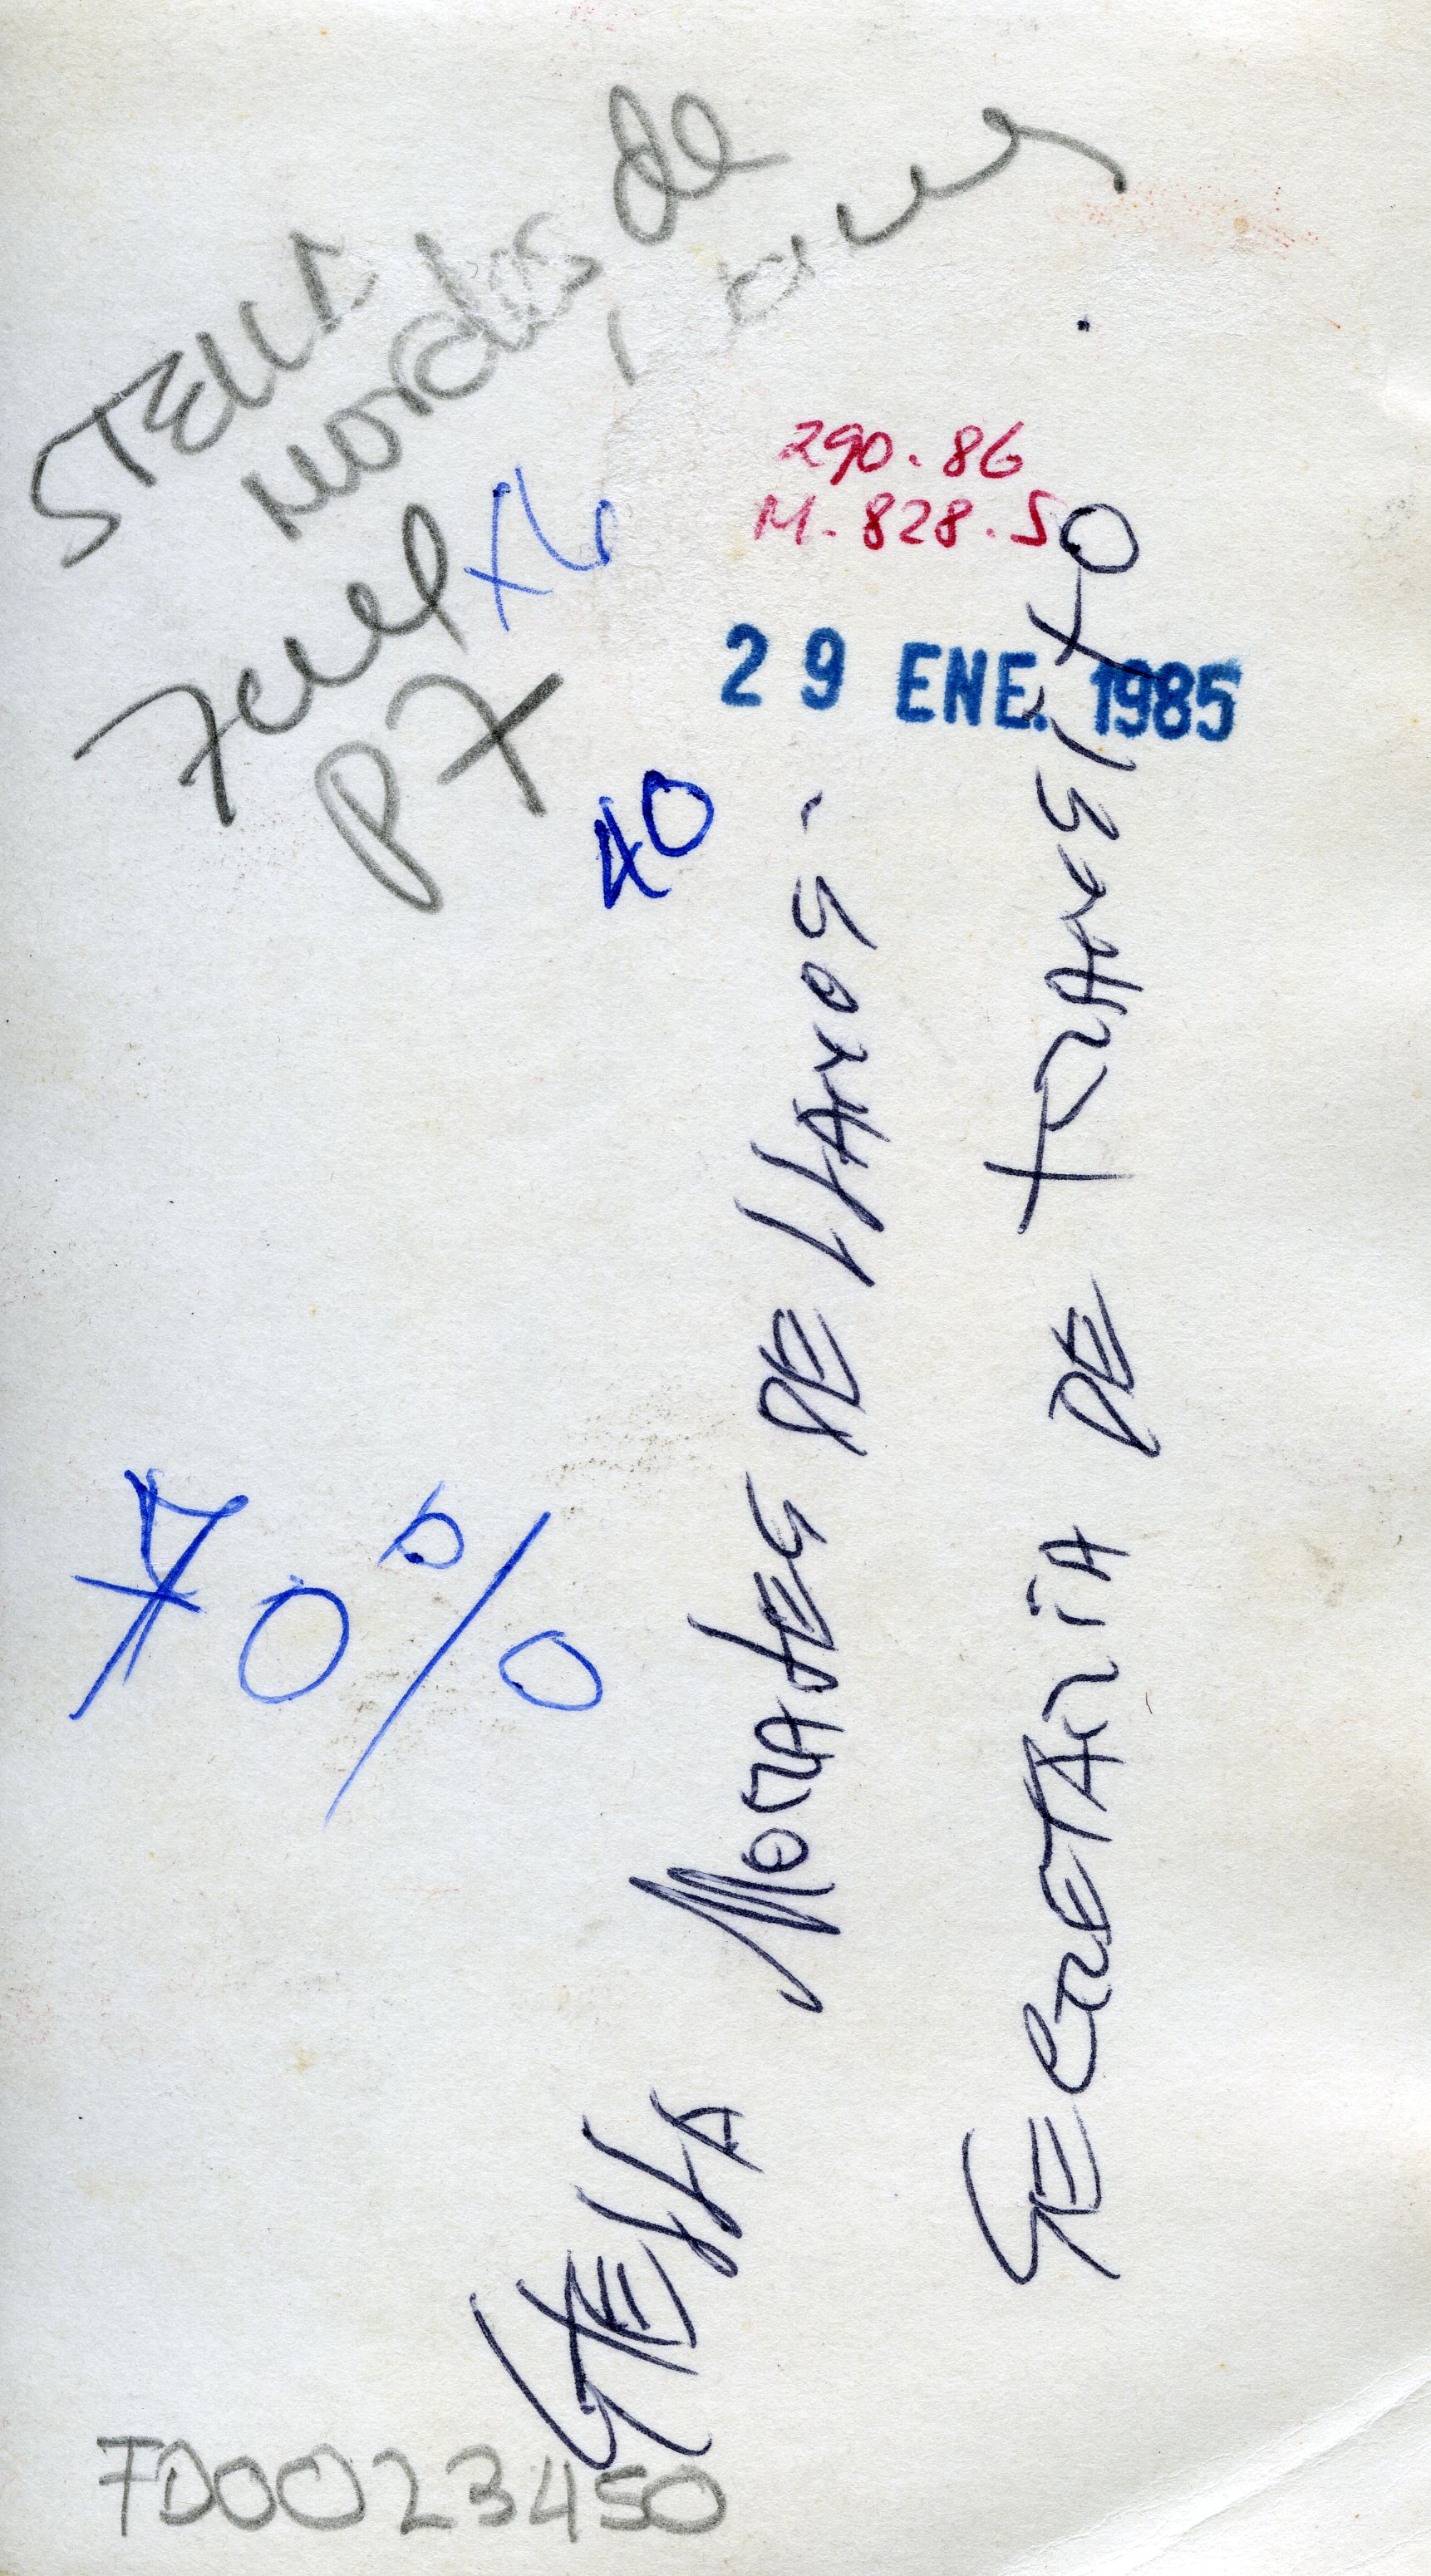 STELLA
Morales de
290.86
M.828.5
29 ENE. 1985
P7
40
70%
STELLA MORALES DE LLANOS -
SECRETARIA DE TRANSITO
FD0023450